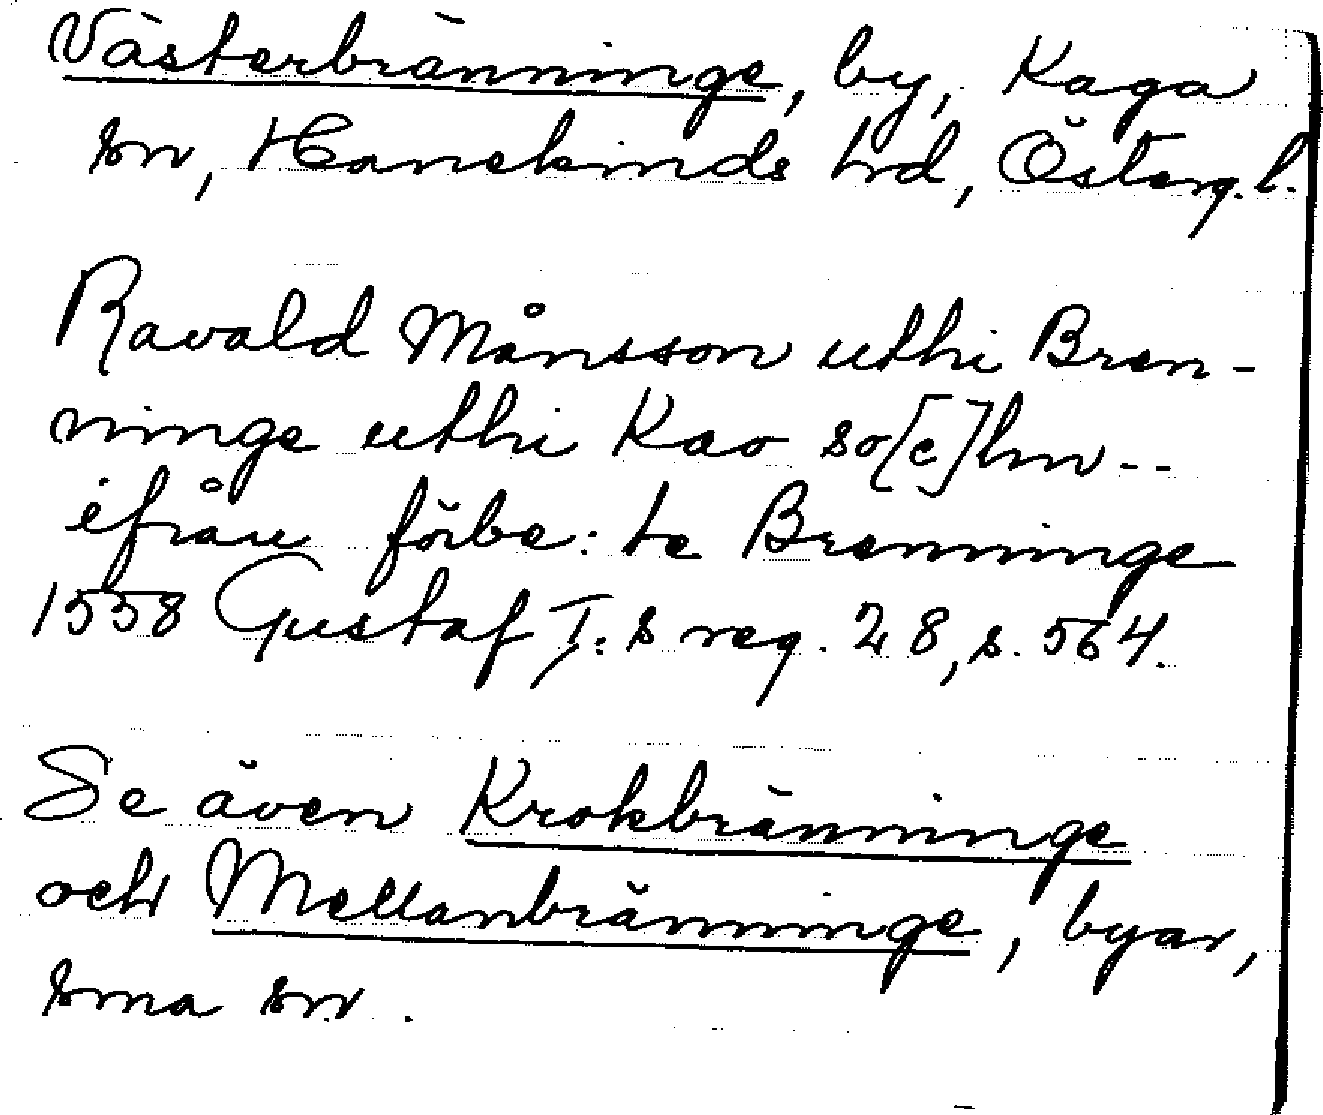 Västerbränninge, by, Kaga
sn, Hanekinds hd, Österg. l.
Ravald Månsson uthi Bren-
ninge uthi Kao so[c]hn--
ifrån förbe: te Brenninge
1558 Gustaf I:s reg. 28, s. 564.
Se även Krokbränninge
och Mellanbränninge, byar,
sma sn.